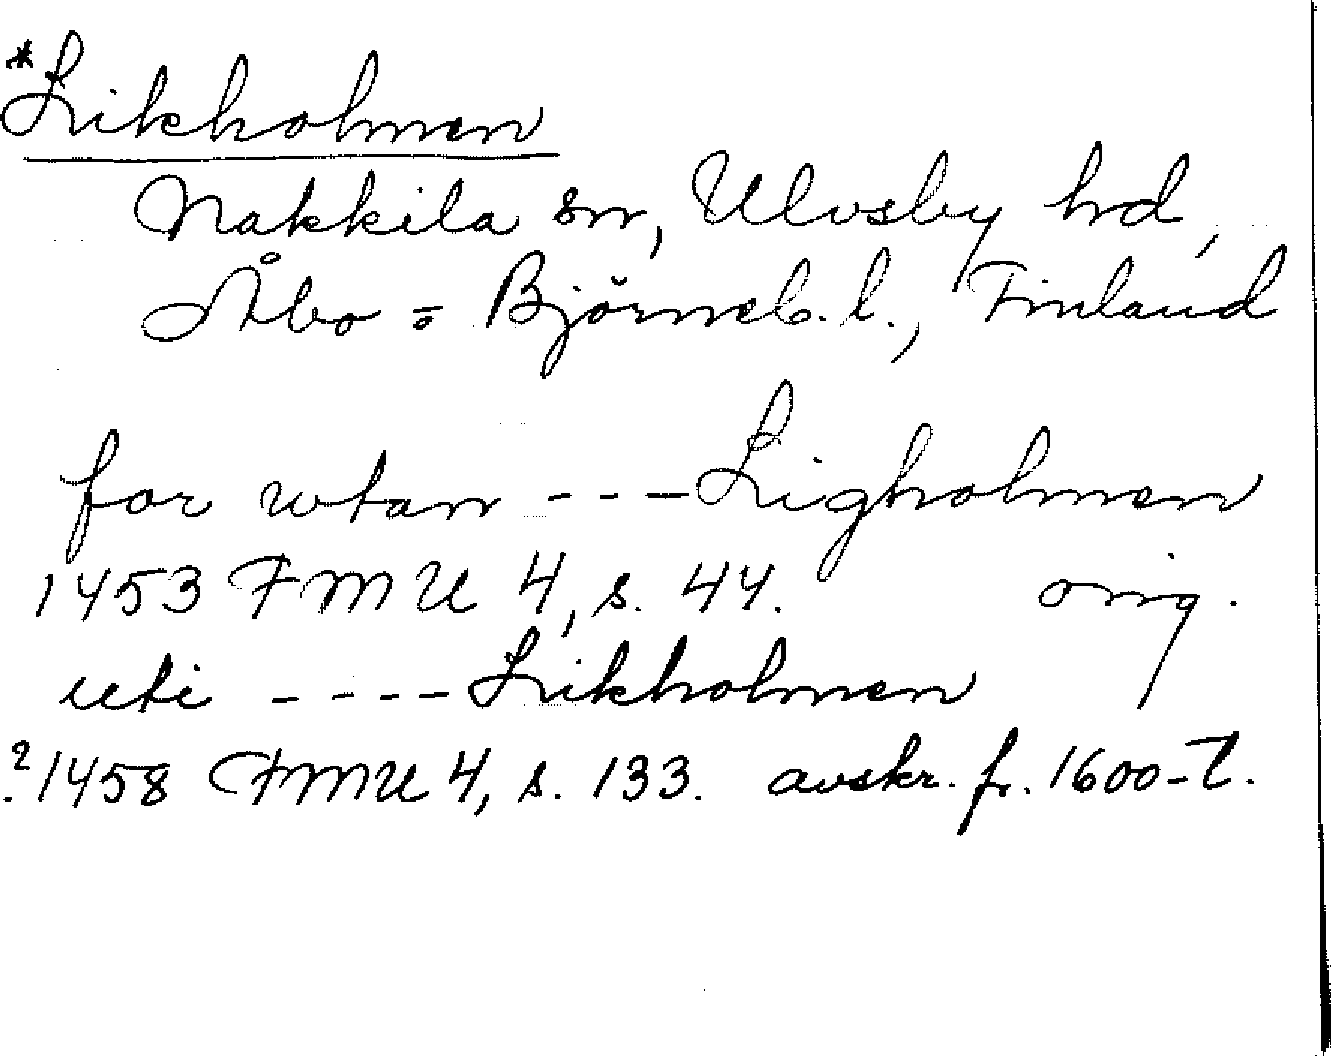 *Likholmen
Nakkila sn, Ulvsby hd,
Åbo = Björneb. l., Finland
for wtan --- Ligholmen
1453 FMU 4, s. 44. orig.
uti ---- Likholmen
?1458 FMU 4, s. 133. avskr. fr. 1600-t.